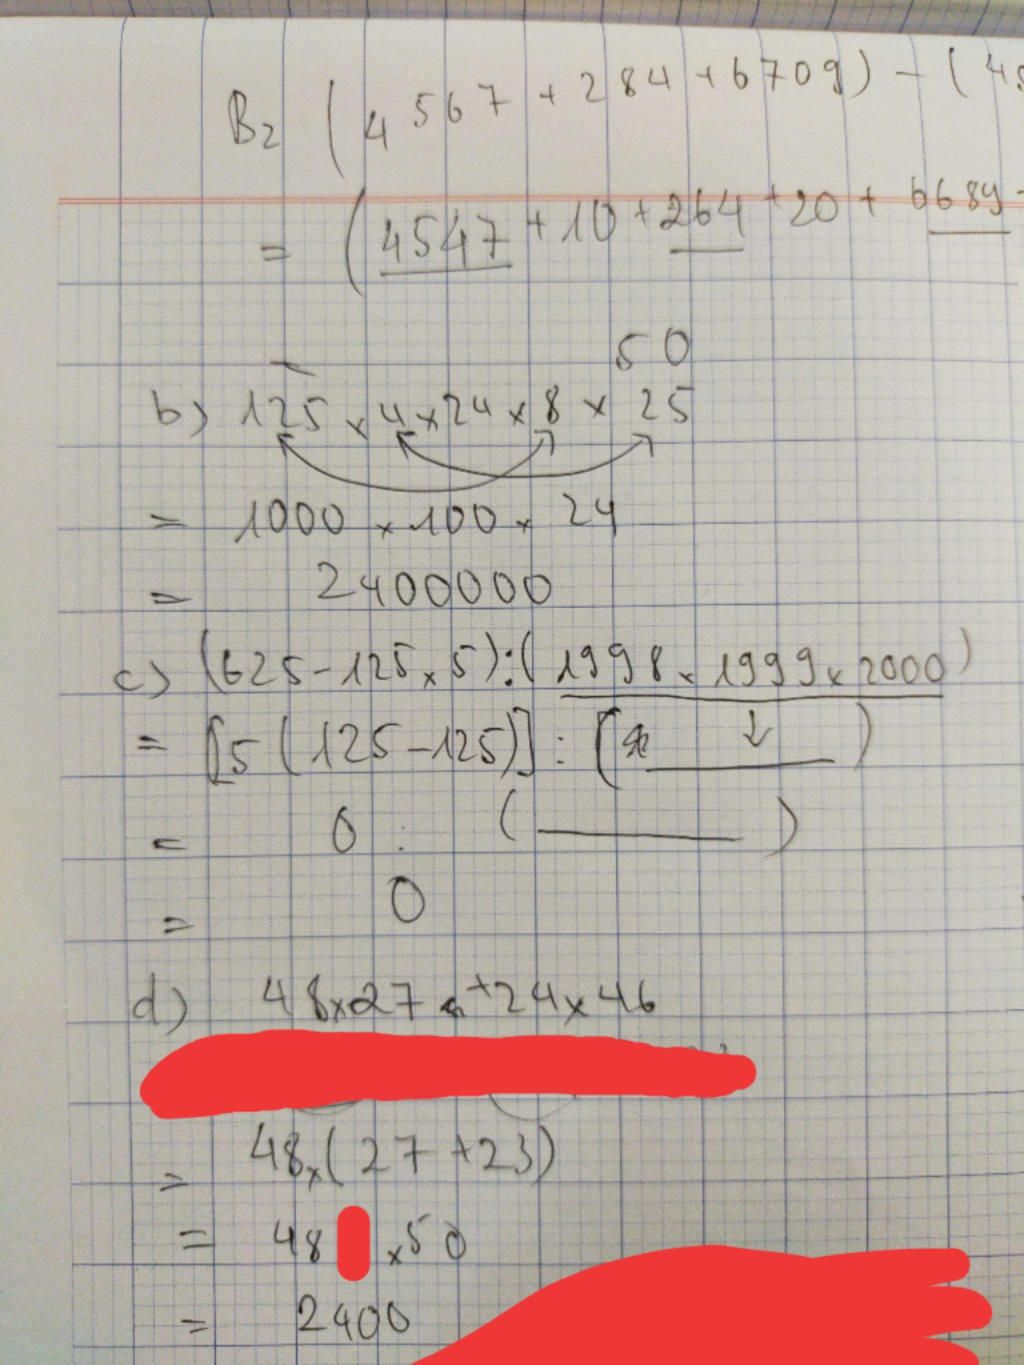 B2 (4567 + 284 + 6709) - (45
= (4547 + 10 + 264 + 20 + 6689 -
50
b) 125 x 4 x 24 x 8 x 25
= 1000 x 100 x 24
= 2400000
c) (625 - 125 x 5) : (1998 x 1999 x 2000)
= [5 (125 - 125)] : [ )
= 0 : ( )
= 0
d) 48 x 27 + 24 x 46
= 48 x (27 + 23)
= 48 x 50
= 2400